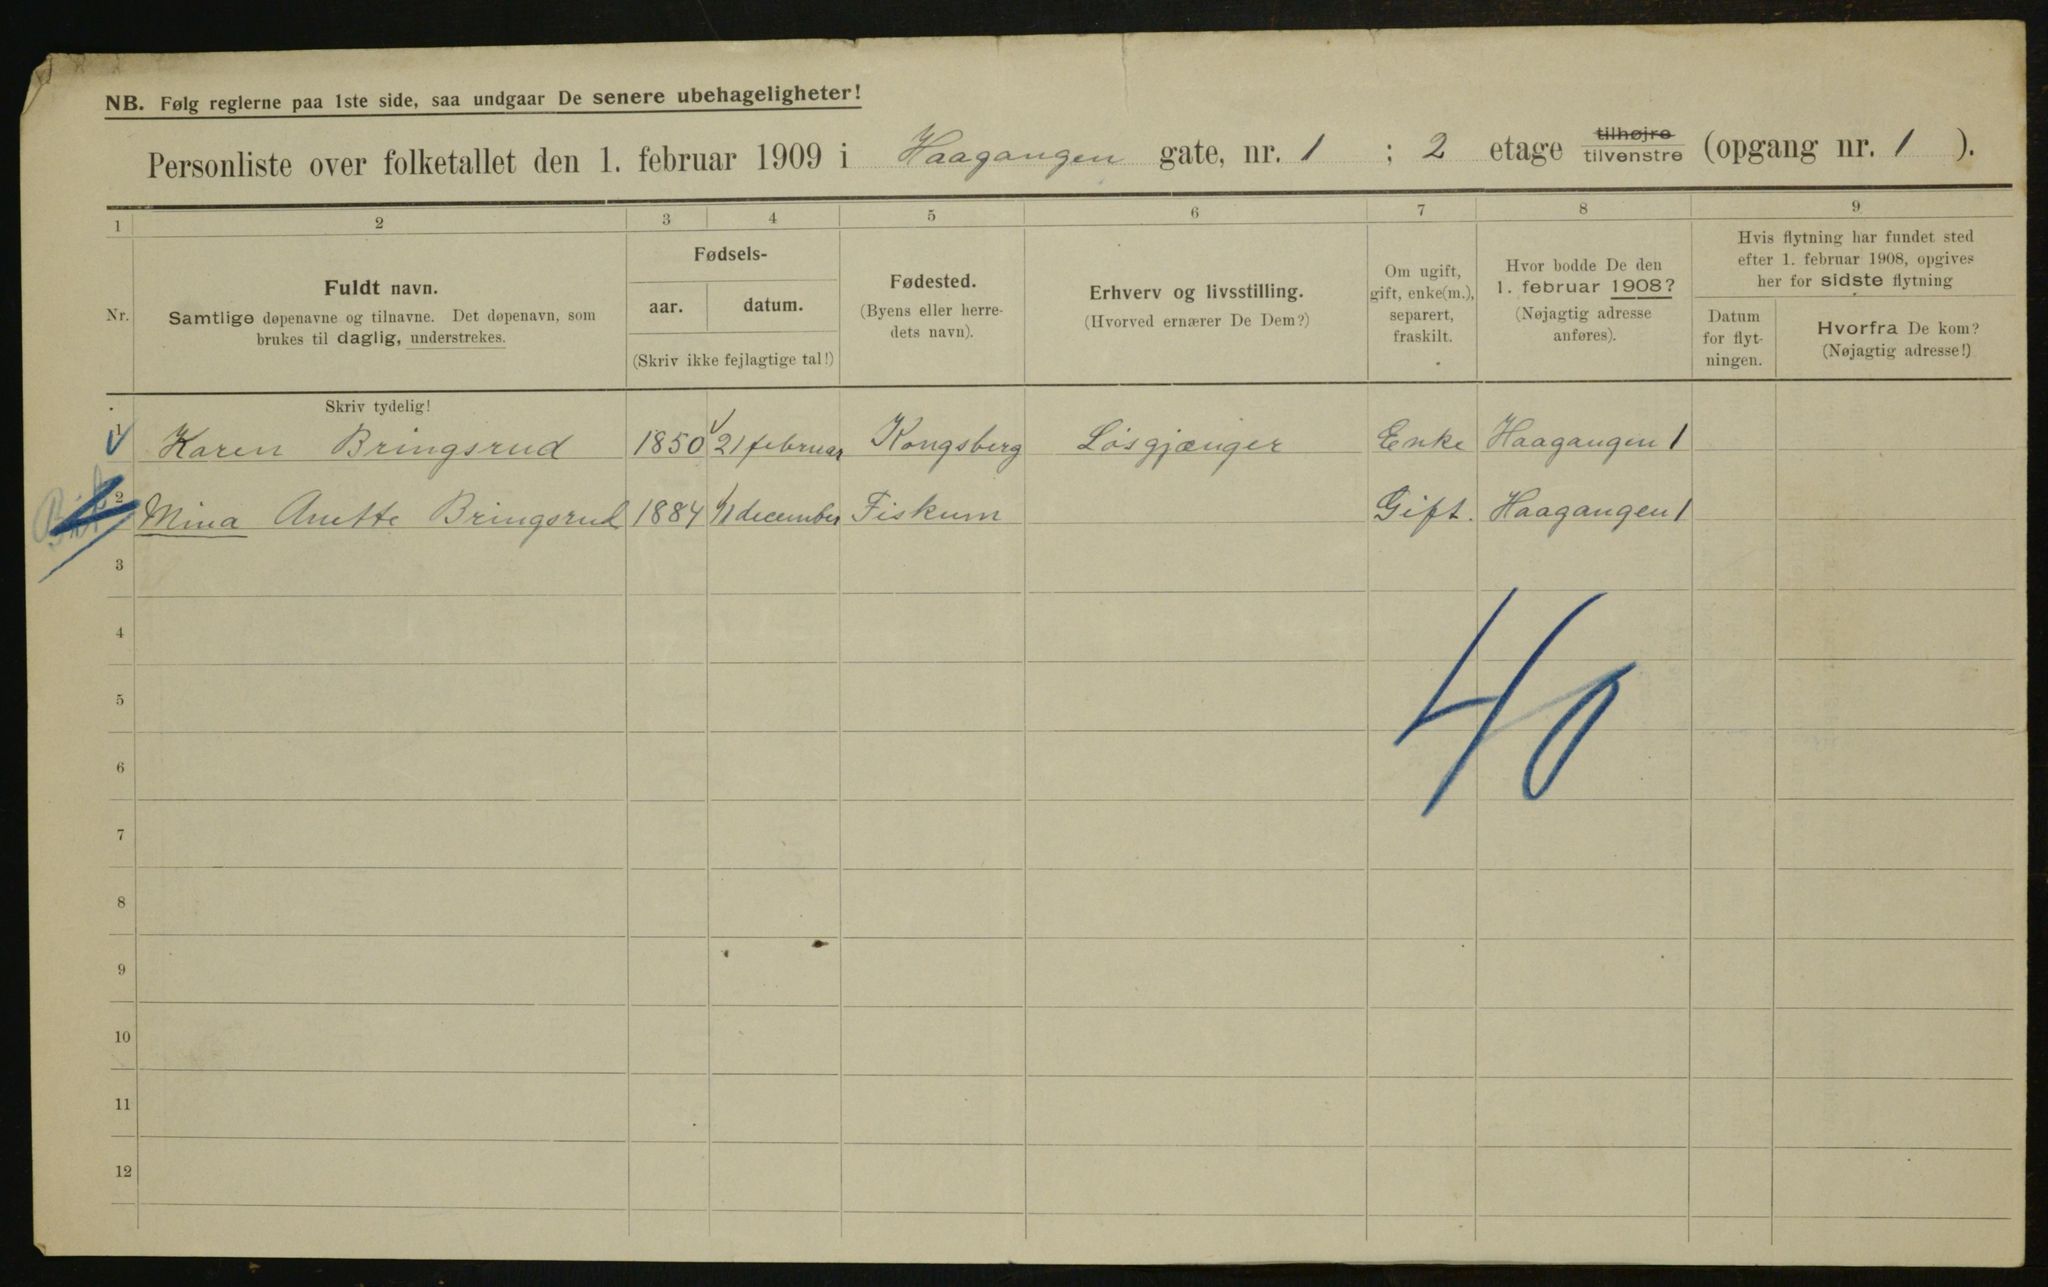 NB. Følg reglerne paa 1ste side, saa undgaar De senere ubehageligheter!
Personliste over folketallet den 1. februar 1909 i Haagangen gate, nr. 1 ; 2 etage tilhøjre tilvenstre (opgang nr. 1 ).
1 2 3 4 5 6 7 8 9
Nr.
Fuldt navn.
Samtlige døpenavne og tilnavne. Det døpenavn, som
brukes til daglig, understrekes.
Fødsels-
aar. datum.
(Skriv ikke fejlagtige tal!)
Fødested.
(Byens eller herre-
dets navn).
Erhverv og livsstilling.
(Hvorved ernærer De Dem?)
Om ugift,
gift, enke(m.),
separert,
fraskilt.
Hvor bodde De den
1. februar 1908?
(Nøjagtig adresse
anføres).
Hvis flytning har fundet sted
efter 1. februar 1908, opgives
her for sidste flytning
Datum
for flyt-
ningen.
Hvorfra De kom?
(Nøjagtig adresse!)
Skriv tydelig!
1 Karen Bringsrud 1850 21 februar Kongsberg Løsgjænger Enke Haagangen 1
2 Mina Anette Bringsrud 1884 11 december Fiskum Gift. Haagangen 1
3
4
5
6
7
8
9
10
11
12
40